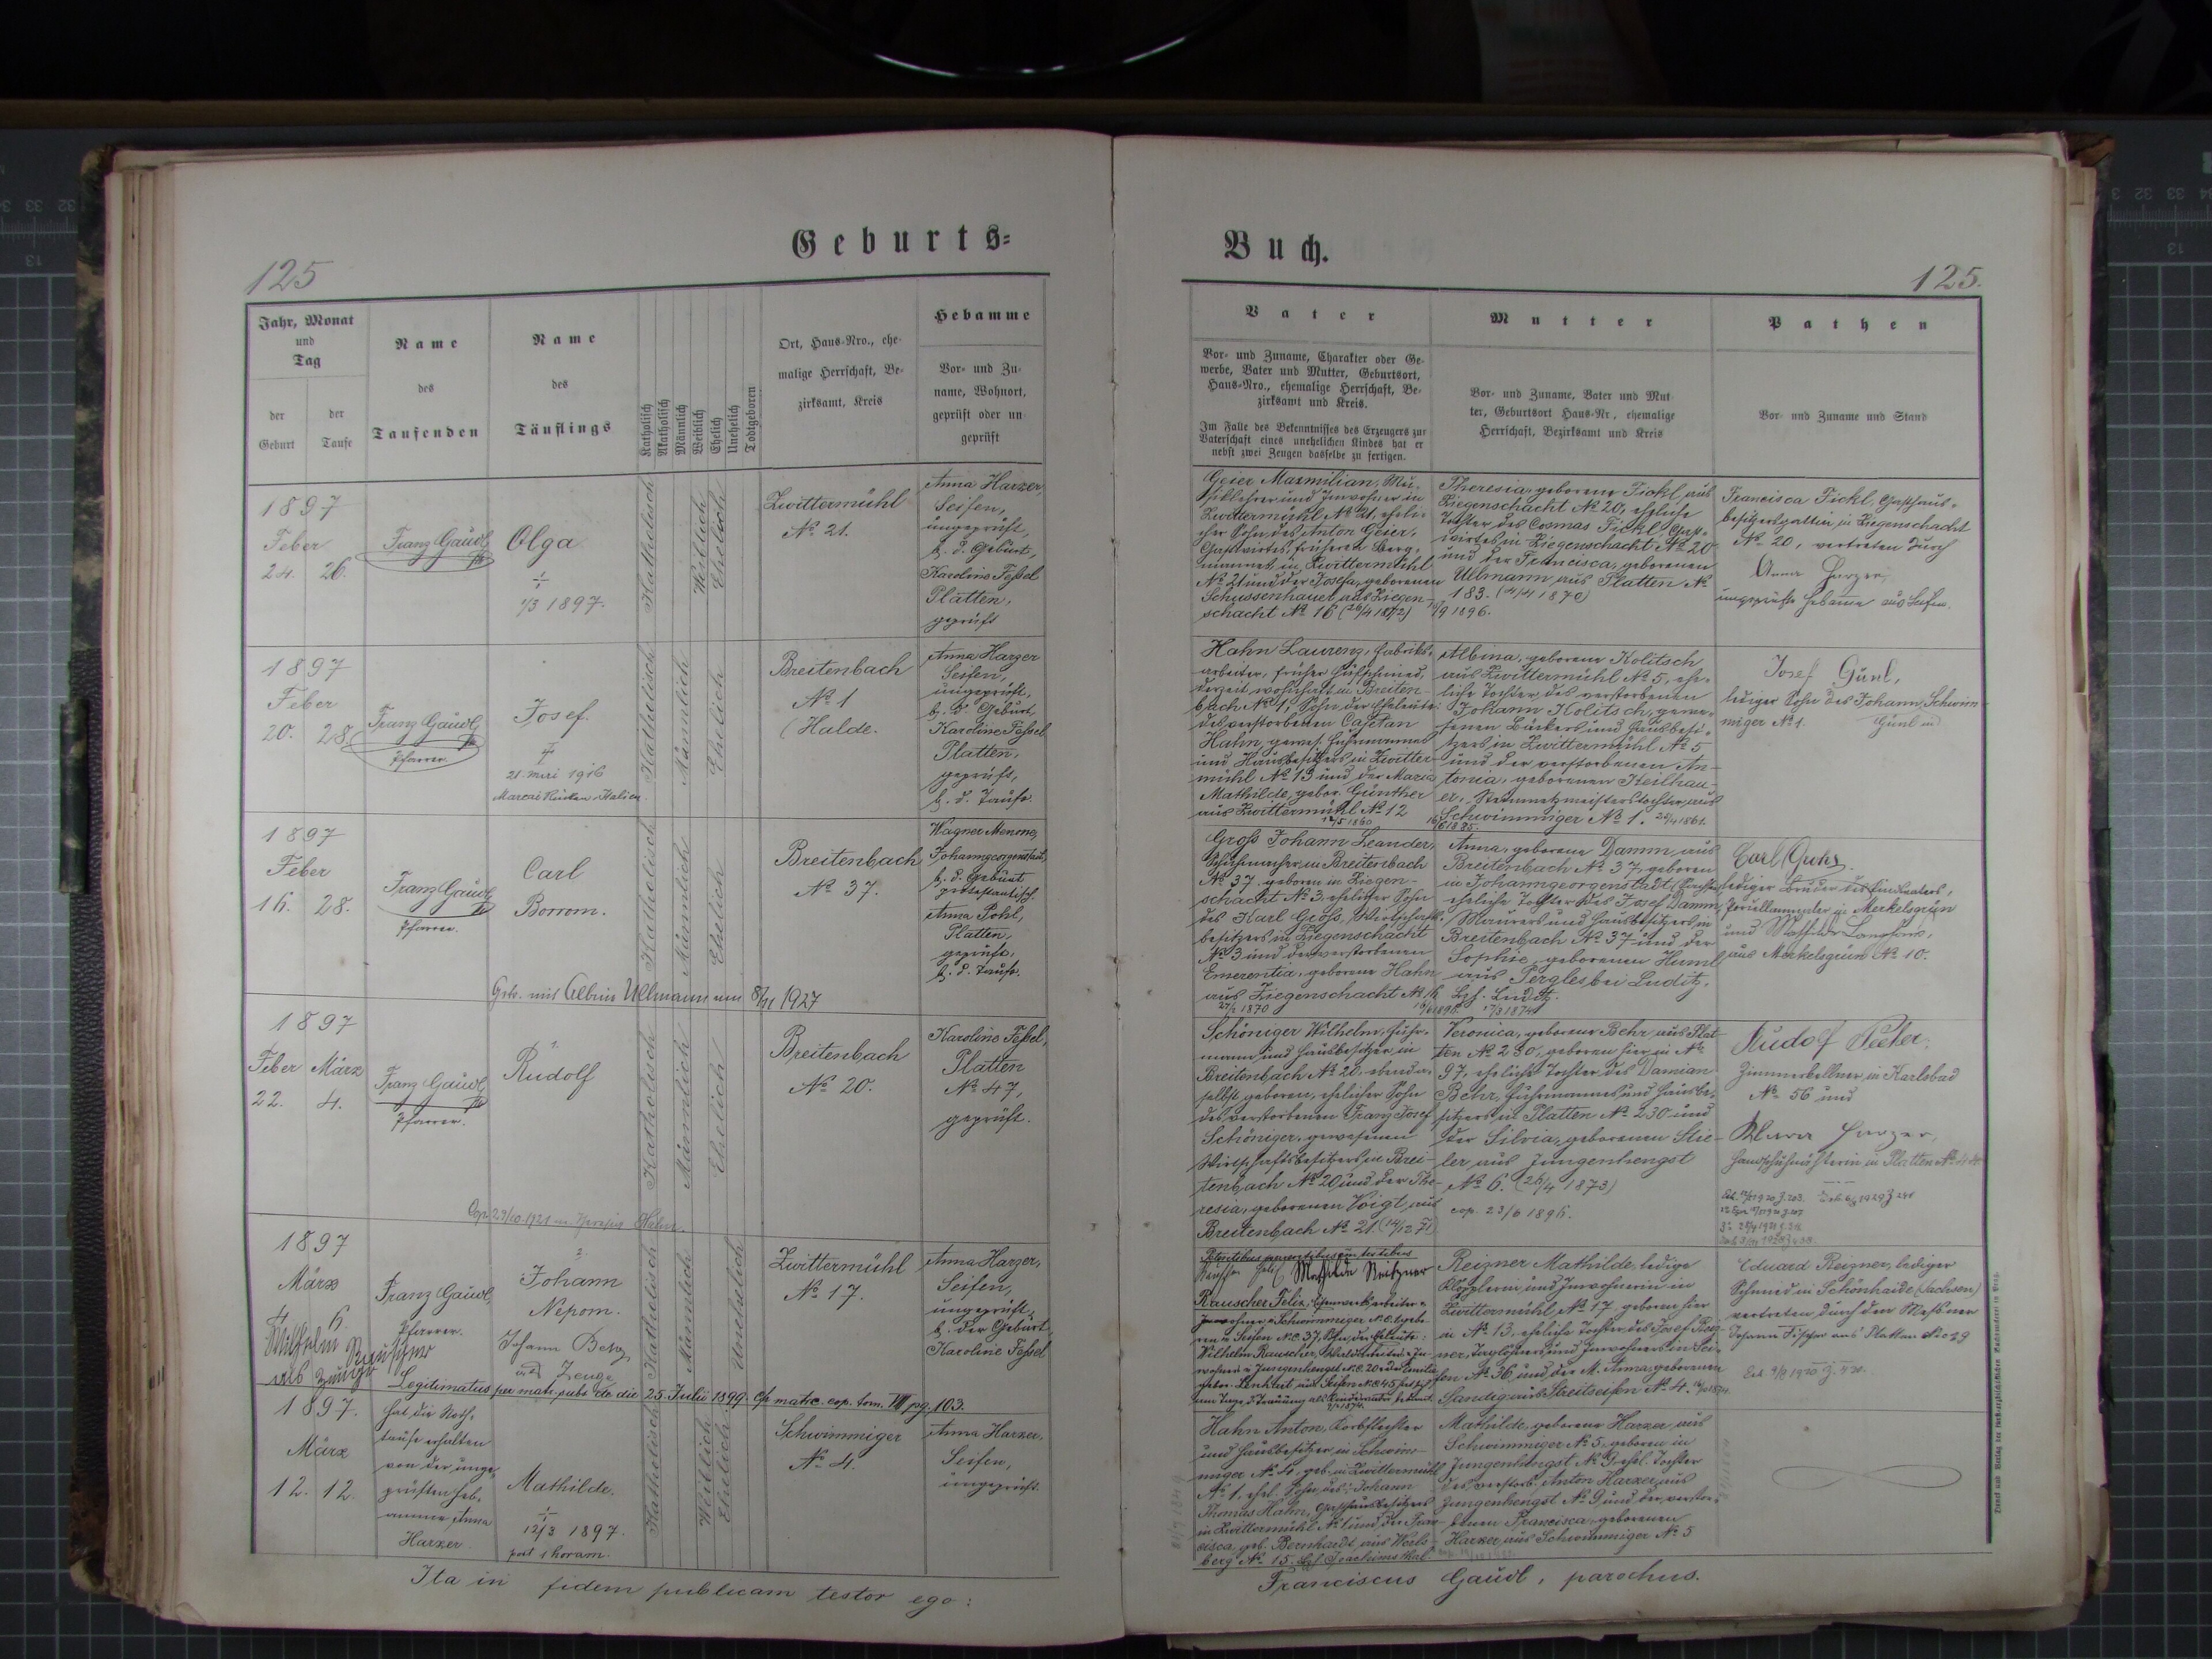 Geburts=
125
Jahr, Monat
und
Tag
der
Geburt
der
Taufe
Name
des
Taufenden
Name
des
Täuflings
Katholisch
Akatholisch
Männlich
Weiblich
Ehelich
Unehelich
Todtgeboren
Ort, Haus-Nro., ehe-
malige Herrschaft, Be-
zirksamt, Kreis
Hebamme
Vor- und Zu-
name, Wohnort,
geprüft oder un-
geprüft
1897
Feber
24. 26.
Franz Gaudl
Olga
1/3 1897.
Katholisch
Weiblich
Ehelich
Zwittermühl
No 21.
Anna Harzer,
Seifen,
ungeprüft,
b. d. Geburt,
Karoline Feßel
Platten,
geprüft
1897
Feber
20. 28.
Franz Gaudl
Pfarrer.
Josef.
21. meri 1916
Italien
Katholisch
Männlich
Ehelich
Breitenbach
No 1
(Halde.
Anna Harzer
Seifen,
ungeprüft,
b. d. Geburt,
Karoline Feßel
Platten,
geprüft,
b. d. Taufe.
1897
Feber
16. 28.
Franz Gaudl
Pfarrer.
Carl
Borrom.
Katholisch
Männlich
Ehelich
Breitenbach
No 37.
Wagner
Johanngeorgenstadt,
b. d. Geburt
protestantisch.
Anna Pohl,
Platten,
geprüft,
b. d. Taufe.
Getr. mit Albine Ullmann am 8/11 1927
1897
Feber März
22. 4.
Franz Gaudl
Pfarrer.
Rudolf
Katholisch
Männlich
Ehelich
Breitenbach
No 20.
Karoline Feßel,
Platten
No 47,
geprüft.
Cop. 29/10 1921 m. Hahn.
1897
März
4. 6.
Wilhelm Rauscher
als Zeuge
Franz Gaudl,
Pfarrer.
Johann
Nepom.
Johann
als Zeuge
Katholisch
Männlich
Unehelich
Zwittermühl
No 17.
Anna Harzer,
Seifen,
ungeprüft,
b. der Geburt
Karoline Feßel
Legitimatus per matr. pubs de die 25. Julii 1899. Cf. matric. cop. tom. VII pg. 103.
1897.
März
12. 12.
hat die Noth-
taufe erhalten
von der unge-
prüften Heb-
amme Anna
Harzer.
Mathilde.
12/3 1897.
post 1 horam.
Katholisch
Weiblich
Ehelich
Schwimmiger
No 4.
Anna Harzer,
Seifen,
ungeprüft.
Ita in fidem publicam testor ego:
Buch.
125.
Vater
Vor- und Zuname, Charakter oder Ge-
werbe, Vater und Mutter, Geburtsort,
Haus-Nro., ehemalige Herrschaft, Be-
zirksamt und Kreis.
Im Falle des Bekenntnisses des Erzeugers zur
Vaterschaft eines unehelichen Kindes hat er
nebst zwei Zeugen dasselbe zu fertigen.
Mutter
Vor- und Zuname, Vater und Mut-
ter, Geburtsort Haus-Nr., ehemalige
Herrschaft, Bezirksamt und Kreis
Pathen
Vor- und Zuname und Stand
Geier Maxmilian, Mu-
siklehrer und Inwohner in
Zwittermühl No 21, eheli-
cher Sohn des Anton Geier,
Gastwirtes, früheren Berg-
mannes in Zwittermühl
No 21 und der Josefa, geborenen
Schussenhauer aus Ziegen-
schacht No 16 (26/4 1872)
Theresia, geborene Fickl, aus
Ziegenschacht No 20, eheliche
Tochter des Cosmas Fickl, Gast-
wirtes in Ziegenschacht No 20
und der Francisca, geborenen
Ullmann, aus Platten No
183. (4/4 1870)
/9 1896.
Francisca Fickl, Gasthaus-
besitzersgattin in Ziegenschacht
No 20, vertreten durch
Anna Harzer,
ungeprüfte Hebamme aus Seifen.
Hahn Laurenz, Fabriks-
arbeiter, früher Hufschmied,
derzeit wohnhaft in Breiten-
bach No 1, Sohn der Eheleute:
des verstorbenen Cajetan
Hahn, gewes. Fuhrmannes
und Hausbesitzers in Zwitter-
mühl No 13 und der Maria
Mathilde, gebor. Günther
aus Zwittermühl No 12
/5 1860
Albina, geborene Kolitsch
aus Zwittermühl No 5, ehe-
liche Tochter des verstorbenen
Johann Kolitsch, gewe-
senen Bäckers und Hausbesi-
tzers in Zwittermühl No 5
und der verstorbenen An-
tonia, geborenen Heilhau-
er, Steinmetzmeisterstochter, aus
Schwimmiger No 1. 25/4 1861.
Josef Günl,
lediger Sohn des Johann, Schwim-
miger No 1. Günl
Groß Johann Leander,
Schuhmacher in Breitenbach
No 37, geboren in Ziegen-
schacht No 3, ehelicher Sohn
des Karl Groß, Wirtschafts-
besitzers in Ziegenschacht
No 3 und der verstorbenen
Emerentia, geborene Hahn
aus Ziegenschacht No 16
27/2 1870
Anna, geborene Damm, aus
Breitenbach No 37, geboren
in Johanngeorgenstadt (Sachsen)
eheliche Tochter des Josef Damm,
Maurers und Hausbesitzers in
Breitenbach No 37 und der
Sophie, geborenen Huml
aus Perglas bei Luditz,
Bzh. Luditz.
1/3 1874
Carl Grohs.
lediger Bruder des Kindsvaters,
Porzellanmaler in Merkelsgrün
und Mathilde Langhans,
aus Merkelsgrün No 10.
Schöniger Wilhelm, Fuhr-
mann und Hausbesitzer in
Breitenbach No 20, ebenda-
selbst geboren, ehelicher Sohn
des verstorbenen Franz Josef
Schöniger, gewesenen
Wirtschaftsbesitzers in Brei-
tenbach No 20 und der The-
resia, geborenen Voigt, aus
Breitenbach No 21. (14/12 71)
Veronica, geborene Behr aus Plat-
ten No 230, geboren hier in No
97, eheliche Tochter des Damian
Behr, Fuhrmannes und Hausbe-
sitzers in Platten No 230 und
der Silvia, geborenen Stie-
ler aus Jungenhengst
No 6. (26/4 1873)
cop. 23/6 1896.
Rudolf Peeter,
Zimmerkellner in Karlsbad
No 56 und
Klara Harzer,
Handschuhnähterin in Platten No
Rauscher Felix Mathilde Reitzner
Rauscher Felix, Eisenwerksarbeiter u.
Inwohner in Schwimmiger N.C. 1, gebo-
ren in Seifen N.C. 37, Sohn der Eheleute:
Wilhelm Rauscher, Waldarbeiter u. In-
wohner in Jungenhengst N.C. 20 u. der Emilie
gebor. Lenhart aus Seifen N.C. 45 hat sich
am Tage d. Trauung als Kindesvater bekannt.
Reizner Mathilde, ledige
Klöpplerin und Inwohnerin in
Zwittermühl No 17, geboren hier
in No 13, eheliche Tochter des Josef Reiz-
ner, Taglöhners und Inwohners in Sei-
fen No 36 und der M. Anna, geborenen
Sandig aus Streitseifen No 4.
Eduard Reizner, lediger
Schmied in Schönhaide (Sachsen)
vertreten durch den Meßner
Johann Fischer aus Platten No 29
Hahn Anton, Korbflechter
und Hausbesitzer in Schwim-
miger No 4, geb. in Zwittermühl
No 1, ehel. Sohn des Johann
Thomas Hahn, Gasthausbesitzers
in Zwittermühl No 1 und der Fran-
cisca, geb. Bernhardt, aus Werls-
berg No 15. Bzh. Joachimsthal
Mathilde, geborene Harzer aus
Schwimmiger No 5, geboren in
Jungenhengst No 9, ehel. Tochter
des verstorb. Anton Harzer aus
Jungenhengst No 9 und der verstor-
benen Francisca, geborenen
Harzer aus Schwimmiger No 5
Franciscus Gaudl, parochus.